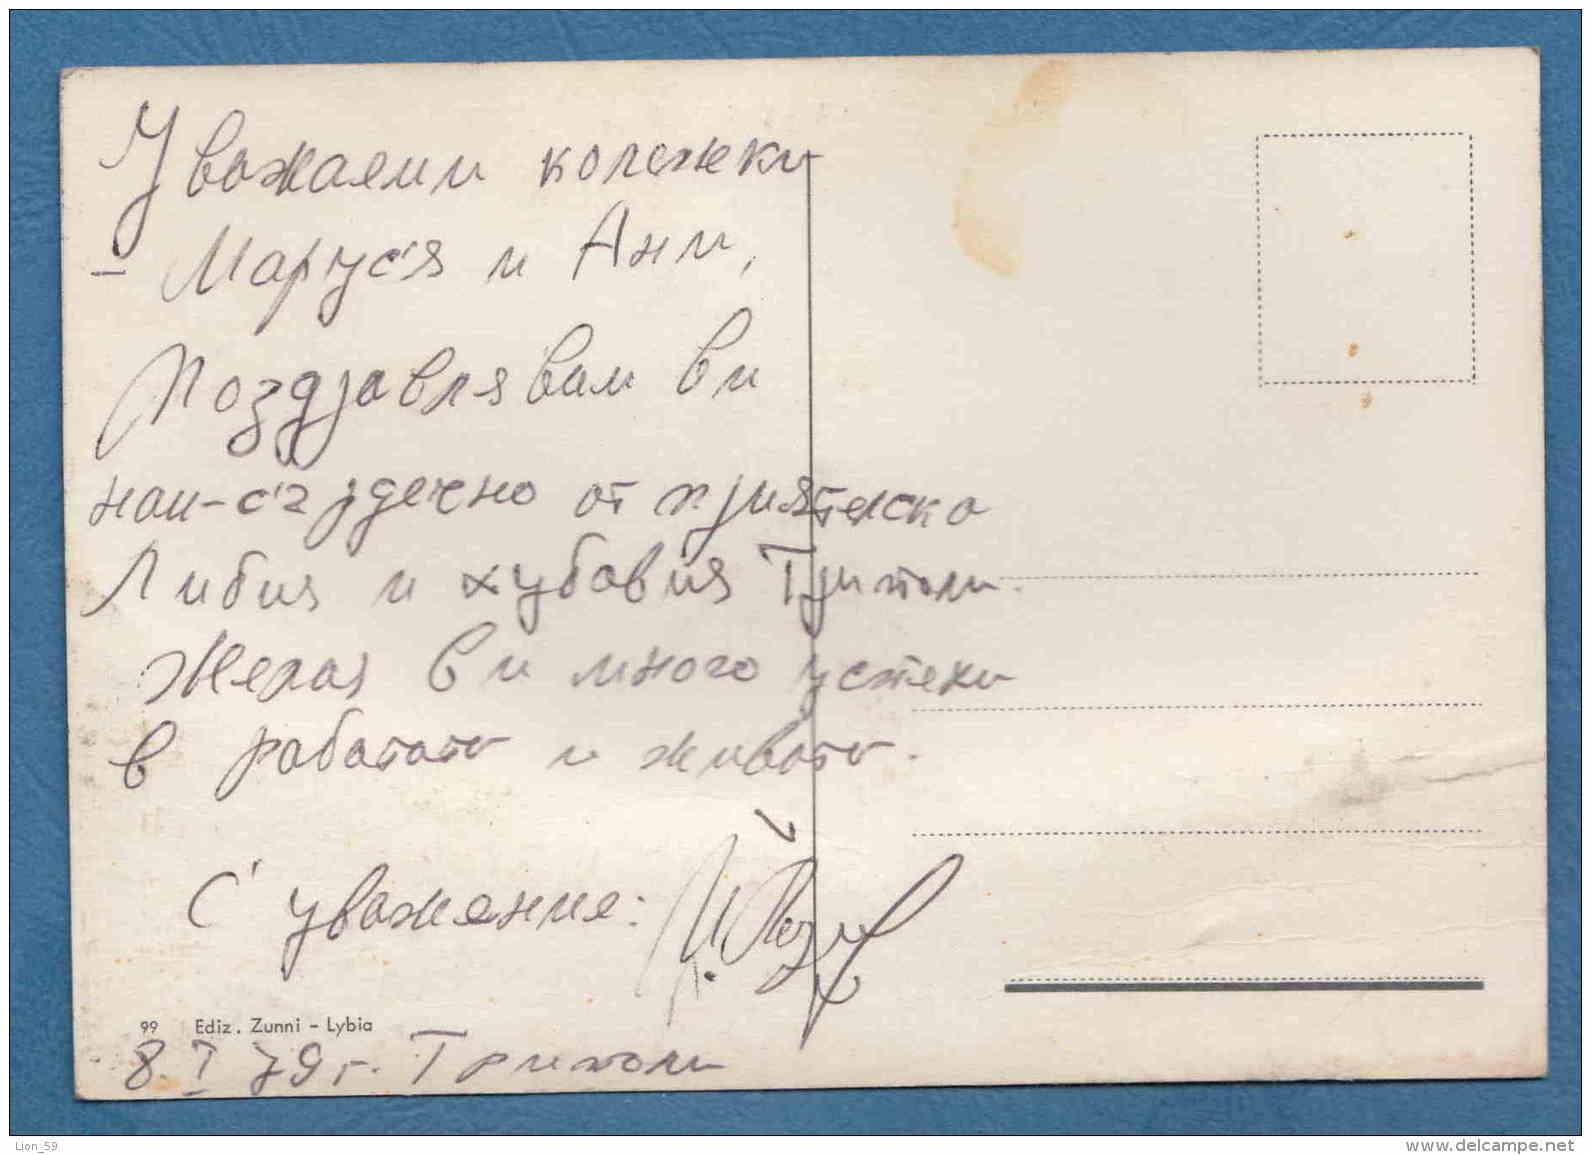 Уважаеми колежки
- Маруся и Ани,
Поздравлявам ви
най-сърдечно от приятелска
Либия и хубавия Триполи.
Желая ви много успехи
в работата и живота.
С уважение:
99 Ediz. Zunni - Lybia
8.I 79 г. Триполи
Lion_59
www.delcampe.net